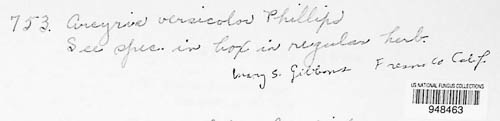 753. Arcyria versicolor Phillips
See spec. in box in regular herb.
Mary S. Gibbons Fresno Co Calif.
US NATIONAL FUNGUS COLLECTIONS
948463